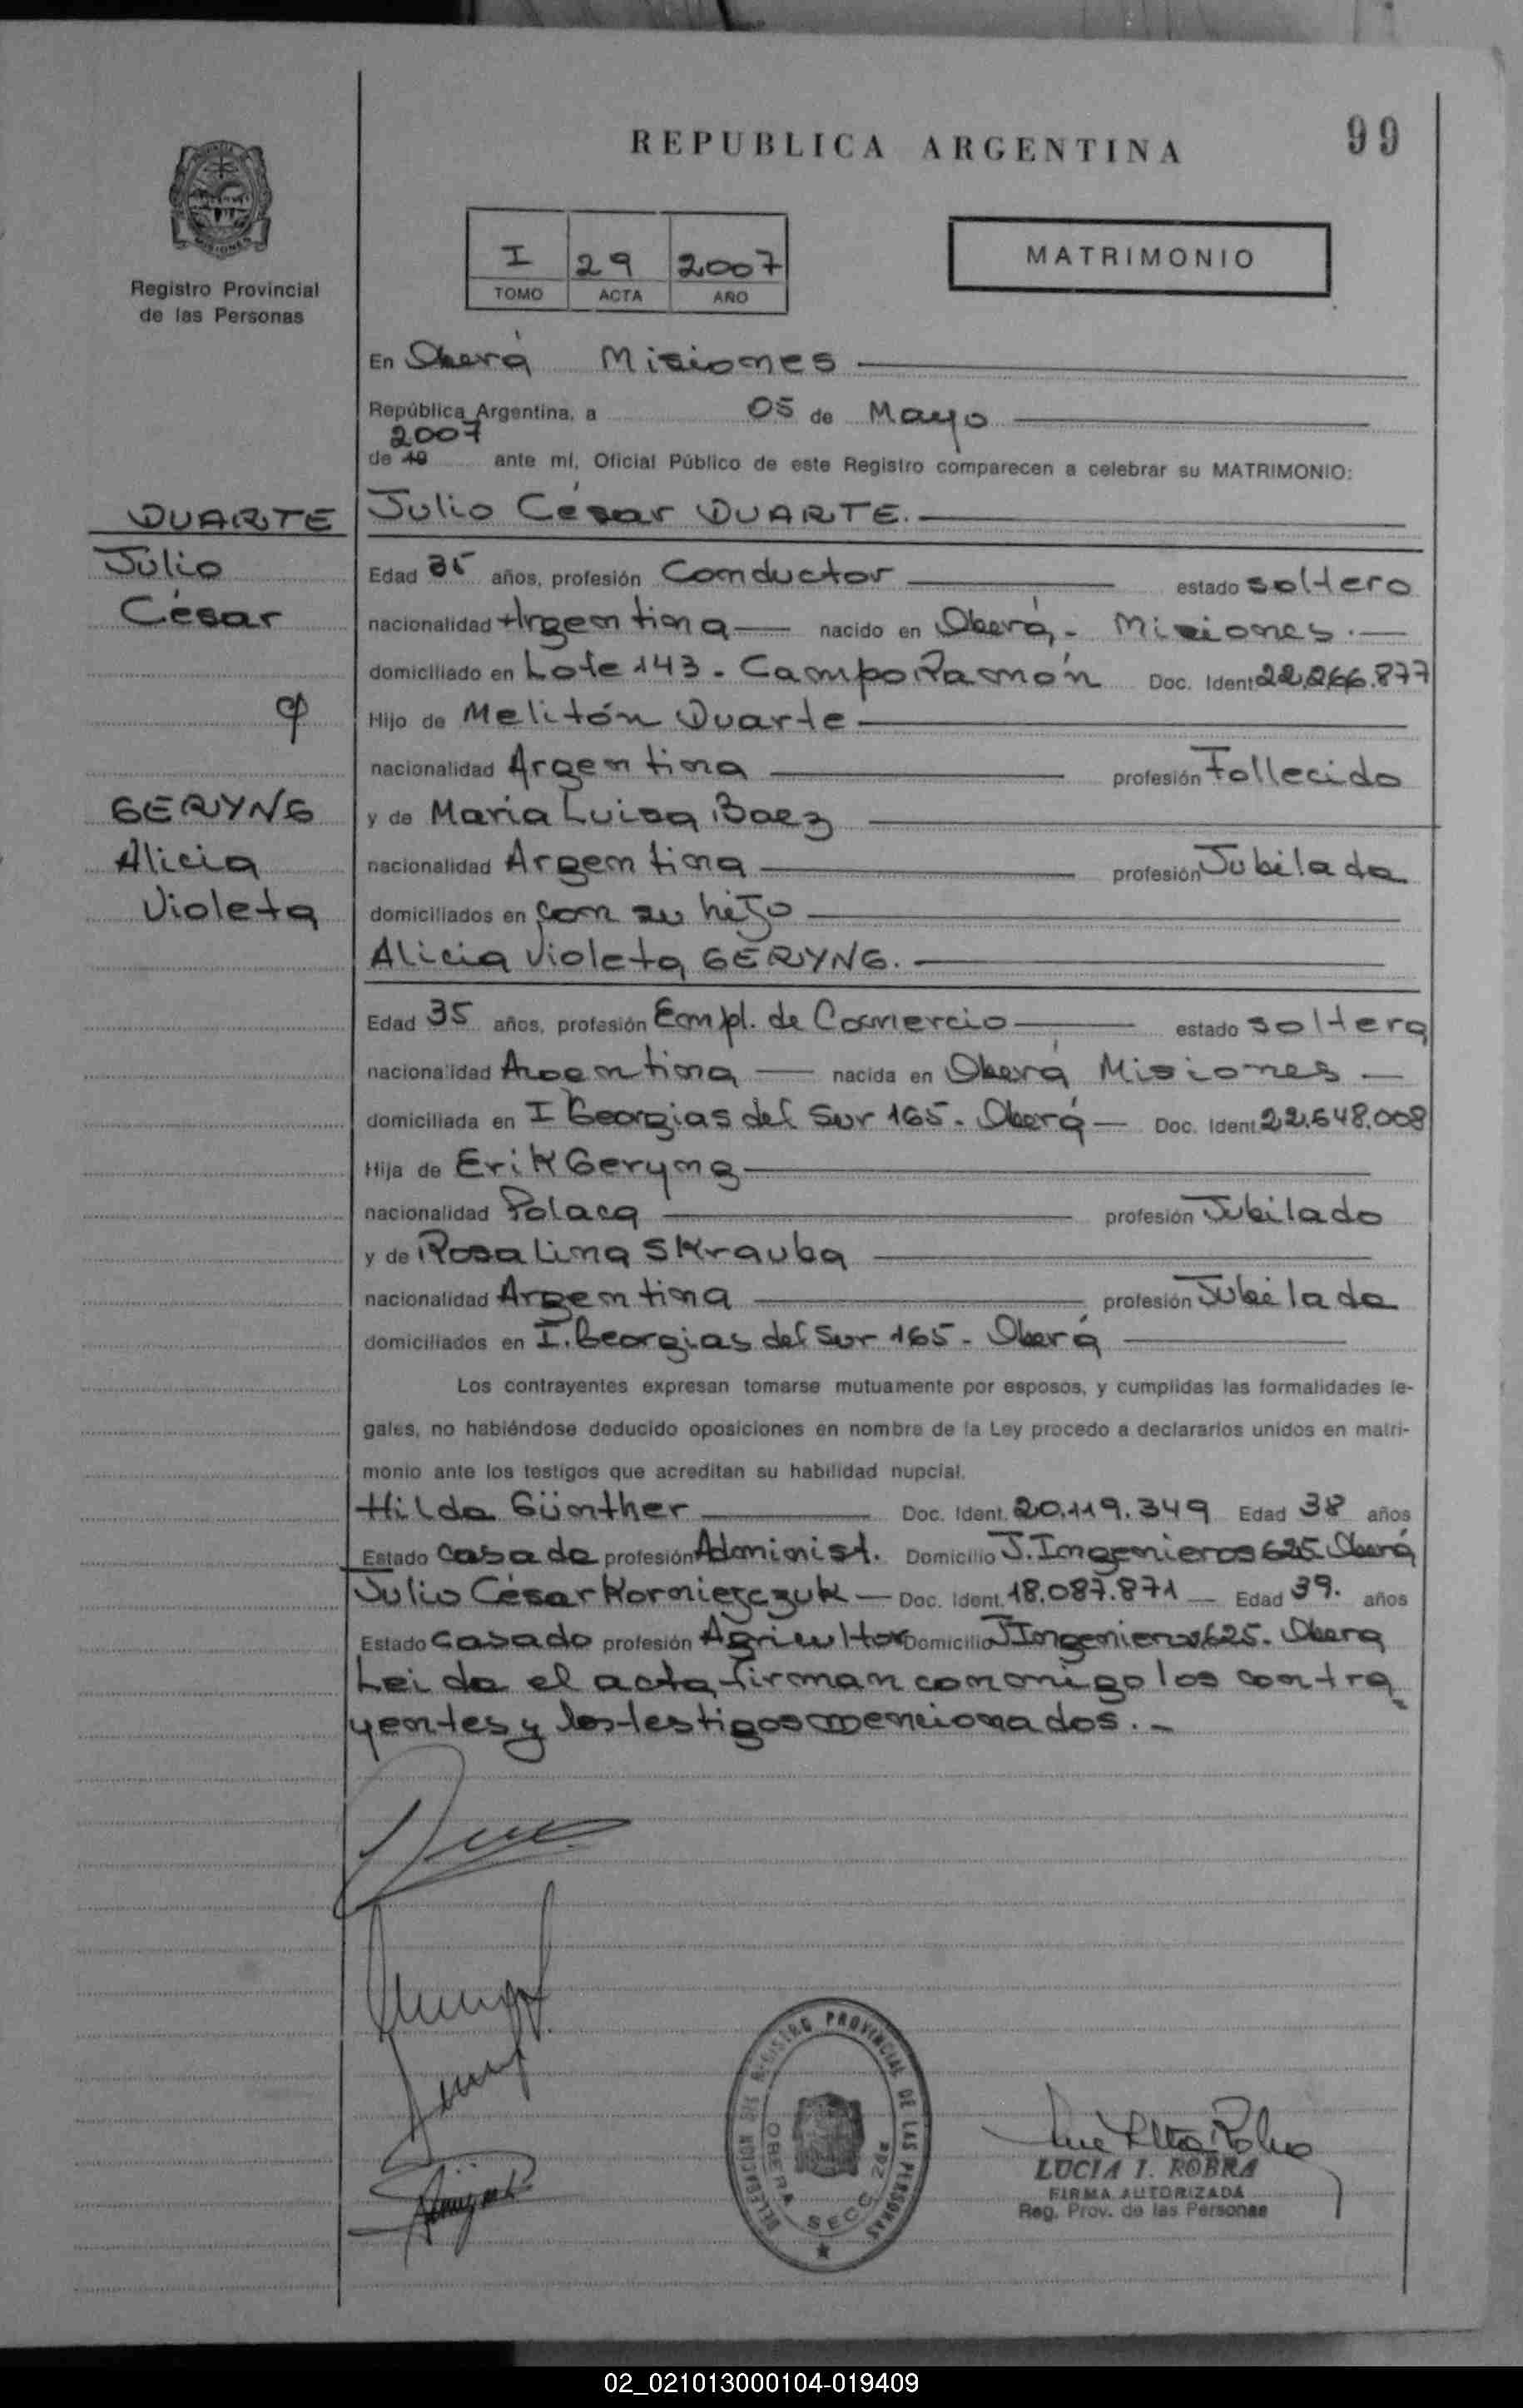 REPUBLICA ARGENTINA
99
MISIONES
Registro Provincial
de las Personas
I 29 2007
TOMO ACTA AÑO
MATRIMONIO
En Oberá Misiones
República Argentina, a 05 de Mayo
2007
de 19 ante mí, Oficial Público de este Registro comparecen a celebrar su MATRIMONIO:
DUARTE
Julio
César
Julio César DUARTE.
Edad 35 años, profesión Conductor estado soltero
nacionalidad Argentina nacido en Oberá - Misiones.
domiciliado en Lote 143 - Campo Ramón Doc. Ident 22.266.877
Hijo de Melitón Duarte
nacionalidad Argentina profesión Fallecido
GERYNG
Alicia
Violeta
y de Maria Luisa Baez
nacionalidad Argentina profesión Jubilada
domiciliados en con su hijo
Alicia Violeta GERYNG.
Edad 35 años, profesión Empl. de Comercio estado soltera
nacionalidad Argentina nacida en Oberá Misiones
domiciliada en I Georgias del Sur 165 - Oberá Doc. Ident. 22.648.008
Hija de Erik Geryng
nacionalidad Polaca profesión Jubilado
y de Rosalina Skrauba
nacionalidad Argentina profesión Jubilada
domiciliados en I. Georgias del Sur 165 - Oberá
Los contrayentes expresan tomarse mutuamente por esposos, y cumplidas las formalidades le-
gales, no habiéndose deducido oposiciones en nombre de la Ley procedo a declararlos unidos en matri-
monio ante los testigos que acreditan su habilidad nupcial.
Hilda Günther Doc. Ident. 20.119.349 Edad 38 años
Estado Casada profesión Administ. Domicilio J. Ingenieros 625 Oberá
Julio César Kornieczuk Doc. Ident. 18.087.871 Edad 39. años
Estado Casado profesión Agricultor Domicilio J Ingenieros 625. Obera
Leida el acta firman conmigo los contra
yentes y los testigos mencionados.-
DELEGACION DEL REGISTRO PROVINCIAL DE LAS PERSONAS
OBERA SECC 2da
LUCIA I. ROBRA
FIRMA AUTORIZADA
Reg. Prov. de las Personas
02_021013000104-019409